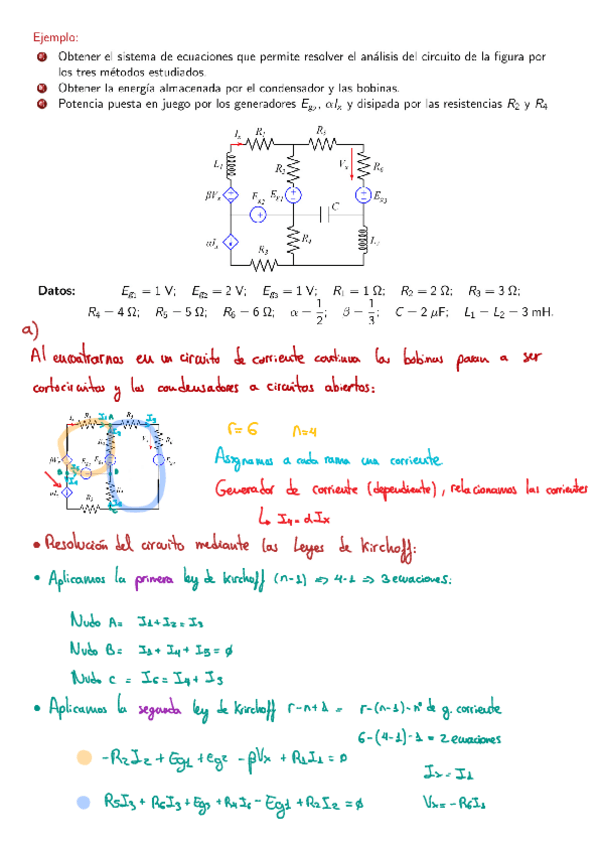 Ejemplo:
Obtener el sistema de ecuaciones que permite resolver el análisis del circuito de la figura por
los tres métodos estudiados.
Obtener la energía almacenada por el condensador y las bobinas.
Potencia puesta en juego por los generadores Eg₂, αIx y disipada por las resistencias R₂ y R₄
Ix R₁ R₅
L₁ R₂ Vx R₆
βVx Eg₂ Eg₁ Eg₃
C
αIx R₄ L₂
R₃
Datos: Eg₁ = 1 V; Eg₂ = 2 V; Eg₃ = 1 V; R₁ = 1 Ω; R₂ = 2 Ω; R₃ = 3 Ω;
R₄ = 4 Ω; R₅ = 5 Ω; R₆ = 6 Ω; α = 1/2; β = 1/3; C = 2 μF; L₁ = L₂ = 3 mH.
a)
Al encontrarnos en un circuito de corriente continua las bobinas pasan a ser
cortocircuitos y los condensadores a circuitos abiertos:
r=6 n=4
Asignamos a cada rama una corriente
Generador de corriente (dependiente), relacionamos las corrientes
↳ I4=αIx
• Resolución del circuito mediante las Leyes de Kirchoff:
• Aplicamos la primera ley de Kirchoff (n-1) => 4-1 => 3 ecuaciones:
Nudo A= I1+I2=I3
Nudo B= I1+I4+I5=ø
Nudo C = I6=I4+I3
• Aplicamos la segunda ley de Kirchoff r-n+1 = r-(n-1)-nº de g. corriente
6-(4-1)-1 = 2 ecuaciones
-R2I2+Eg1+eg2-βVx+R1I1=0
Ix=I1
R5I3+R6I3+Eg3+R4I6-Eg1+R2I2=ø
Vx=-R6I3